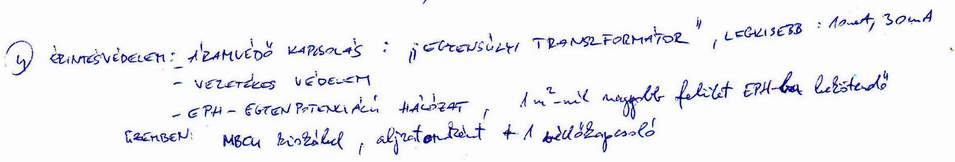 4) ÉRINTÉSVÉDELEM: - ÁRAMVÉDŐ KAPCSOLÁS : „EGYENSÚLYI TRANSZFORMÁTOR", LEGKISEBB : 10mA, 30mA
- VEZETÉKES VÉDELEM
- EPH - EGYENPOTENCIÁLÚ HÁLÓZAT, 1m²-nél nagyobb felület EPH-ba bekötendő
ÜZEMBEN: kiskábel, aljzatonként + 1 védőkapcsoló